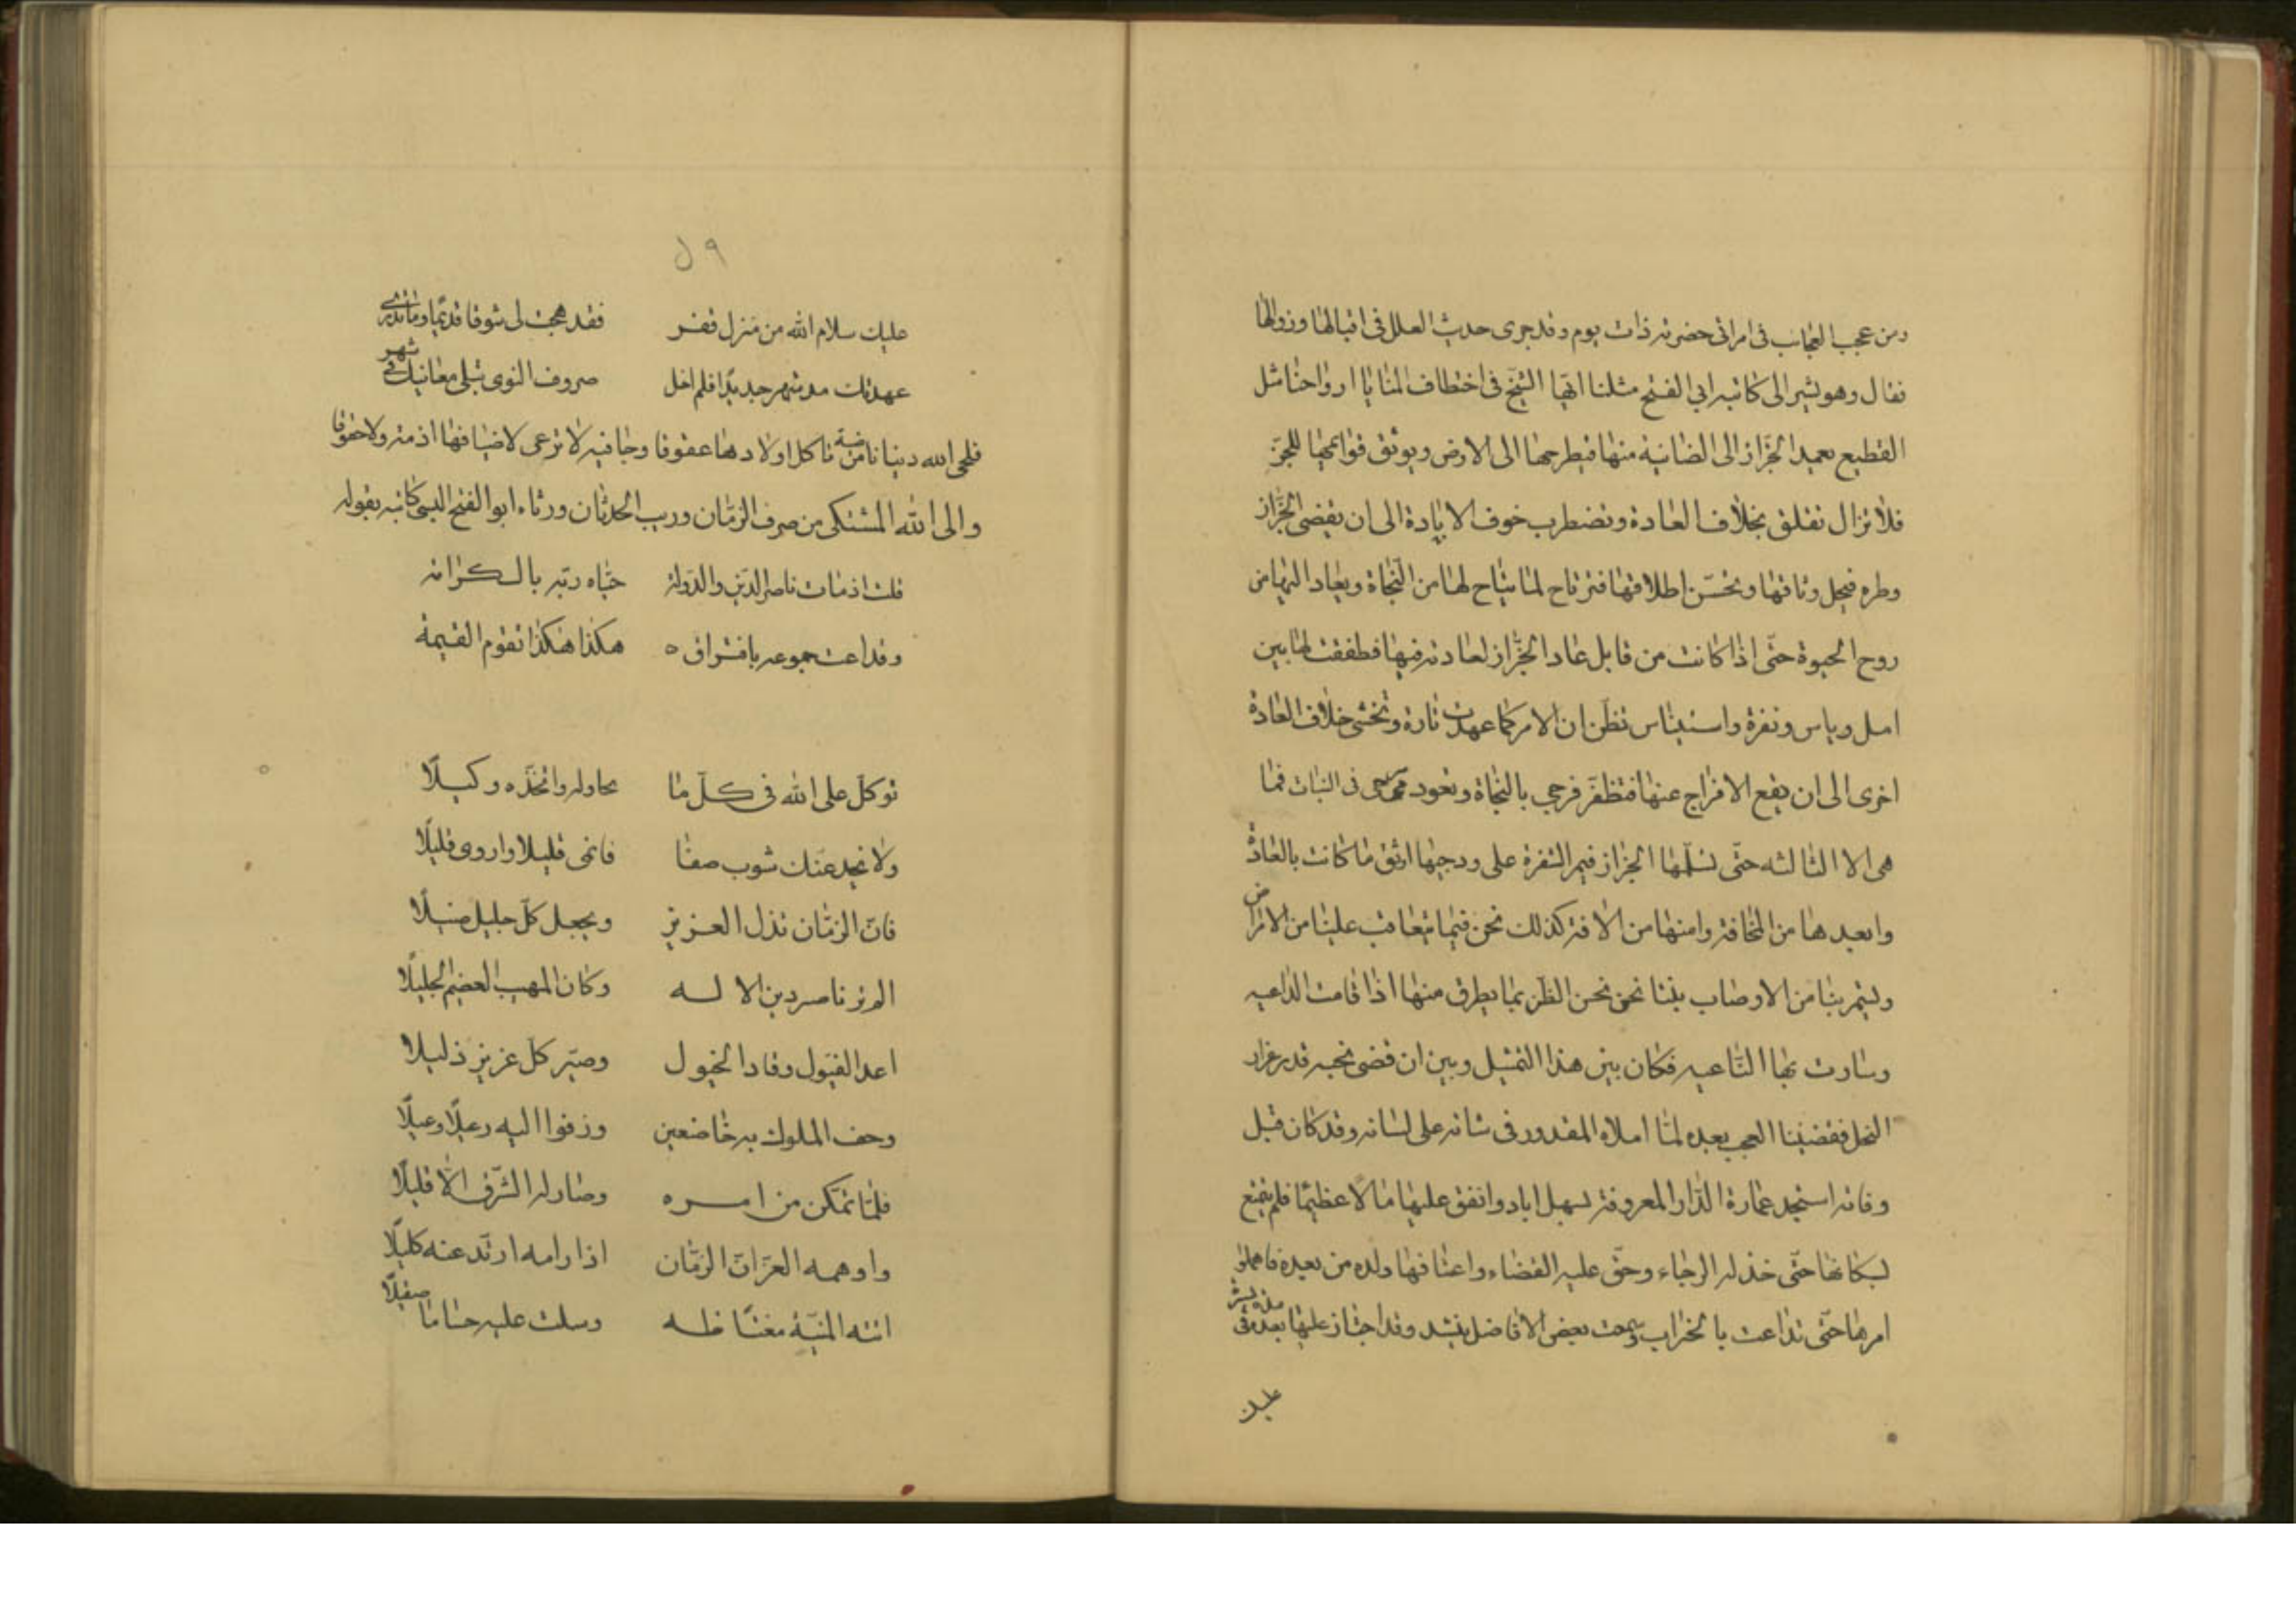 ومن عجب العجائب فى امرانى حضرته ذات يوم وقد جرى حديث العلل فى اقبالها وزوالها
فقال وهو يشير الى كاتبه ابى الفتح مثلنا ايها الشيخ فى اختطاف المنايا ارواحنا مثل
القطيع يعمد الجزاز الى الضانية منها فيطرحها الى الارض ويوثق قوائمها للجز
فلا تزال تقلق بخلاف العادة وتضطرب خوف الابادة الى ان يقضى الجزاز
وطره فيحل وثاقها ويحسن اطلاقها فترتاح لما يتاح لها من النجاة ويعاد اليها من
روح الحيوة حتى اذا كانت من قابل عاد الجزاز لعادته فيها فطفقت لها بين
امل وياس ونفرة واستيناس تظن ان الامر كما عهدت تارة وتخشى خلاف العادة
اخرى الى ان يقع الافراج عنها فتظفر فرحى بالنجاة وتعود مرحى فى النبات فما
هى الا الثالثه حتى تسلمها الجزار فيمر الشفرة على ودجيها اوثق ما كانت بالعادة
وابعدها من المخافة وامنها من الافة كذلك نحن فيما يتعاقب علينا من الامراض
ويستمر بنا من الاوصاب بينا نحن نحسن الظن بما يطرق منها اذا قامت الداعيه
وسارت بها الناعيه فكان بين هذا التمثيل وبين ان قضى نحبه قدر غرار
النحل فقضينا العجب بعده لما املاه المقدور فى شانه على لسانه وقد كان قبل
وفاته استجد عمارة الدار المعروفة بسهل اباد وانفق عليها مالا عظيما فلم يتمتع
بسكانها حتى خذله الرجاء وحق عليه القضاء واعتافها ولده من بعده فاهملوا
امرها حتى تداعت بالخراب وسمعت بعض الافاضل ينشد وقد اجتاز عليها بعده فى
عليك
٥٩
عليك سلام الله من منزل قفر فقد هجت لى شوقا قديما وما تدرى
عهدتك مذ شهر جديدا فلم اخل صروف النوى تبلى مغانيك فى شهر
فلحى الله دنيانا من تاكل اولادها عقوقا وجافيه لا ترعى لاضيافها اذمة ولا حقوقا
والى الله المشتكى من صرف الزمان وريب الحدثان ورثاه ابو الفتح البستى كاتبه بقوله
قلت اذ مات ناصر الدين والدولة حياه ربه بالكرامه
وتداعت جموعه بافتراق هكذا هكذا تقوم القيمة
توكل على الله فى كل ما تحاوله واتخذه وكيلا
ولا يخدعنك شوب صفا فانمى قليلا واروى قليلا
فان الزمان تذل العزيز ويجعل كل جليل ضئيلا
الم تر ناصر دين الاله وكان المهيب العضيم الجليلا
اعد الفيول وقاد الخيول وصير كل عزيز ذليلا
وحف الملوك به خاضعين وزفوا اليه رعيلا رعيلا
فلما تمكن من امره وصار له الشرق الا قليلا
واوهمه العز ان الزمان اذا رامه ارتد عنه كليلا
اتته المنية مغتاظه وسلت عليه حساما صقيلا